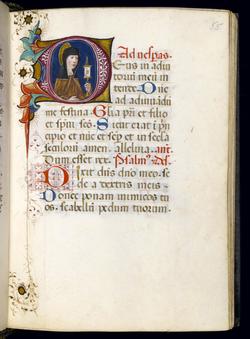 85
Ad vespas.
Deus in adiu
toriu meu in
tende. Dne
ad adiuvandu
me festina Glia pri et filio
et spiu sco. Sicut erat i prin
cipio et nuc et sep et in secula
seculoru amen. alleluia. ant.
Dum esset rex. Psalm9. Dd.
Dixit dns dno meo. se
de a dextris meis.
Donec ponam inimicos tu
os. scabellu pedum tuorum.